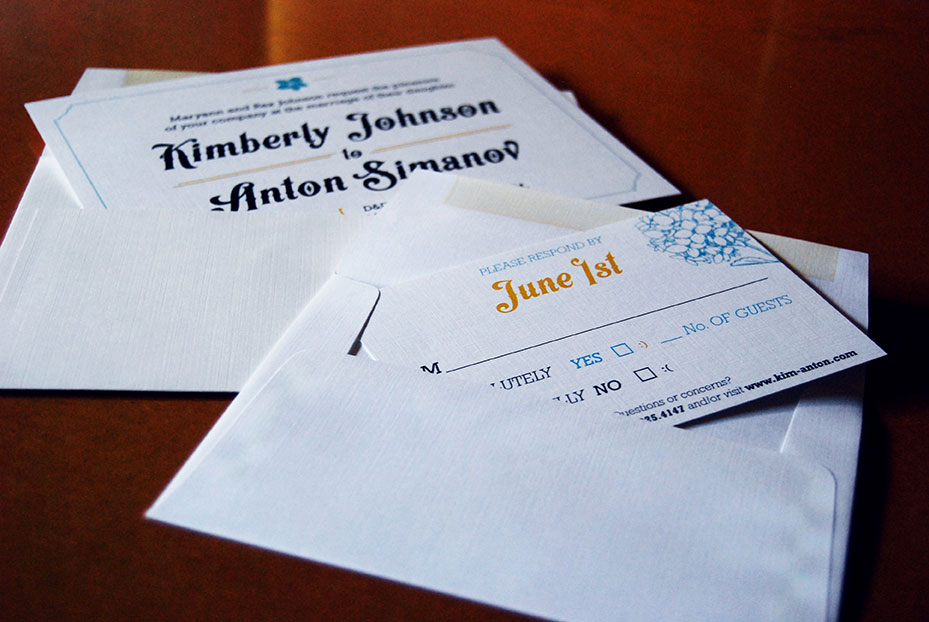 Maryann and Rex Johnson request the pleasure
of your company at the marriage of their daughter
Kimberly Johnson
to
Anton Simanov
PLEASE RESPOND BY
June 1st
M
LUTELY YES :) No. OF GUESTS
LLY NO :(
uestions or concerns?
85.4147 and/or visit www.kim-anton.com